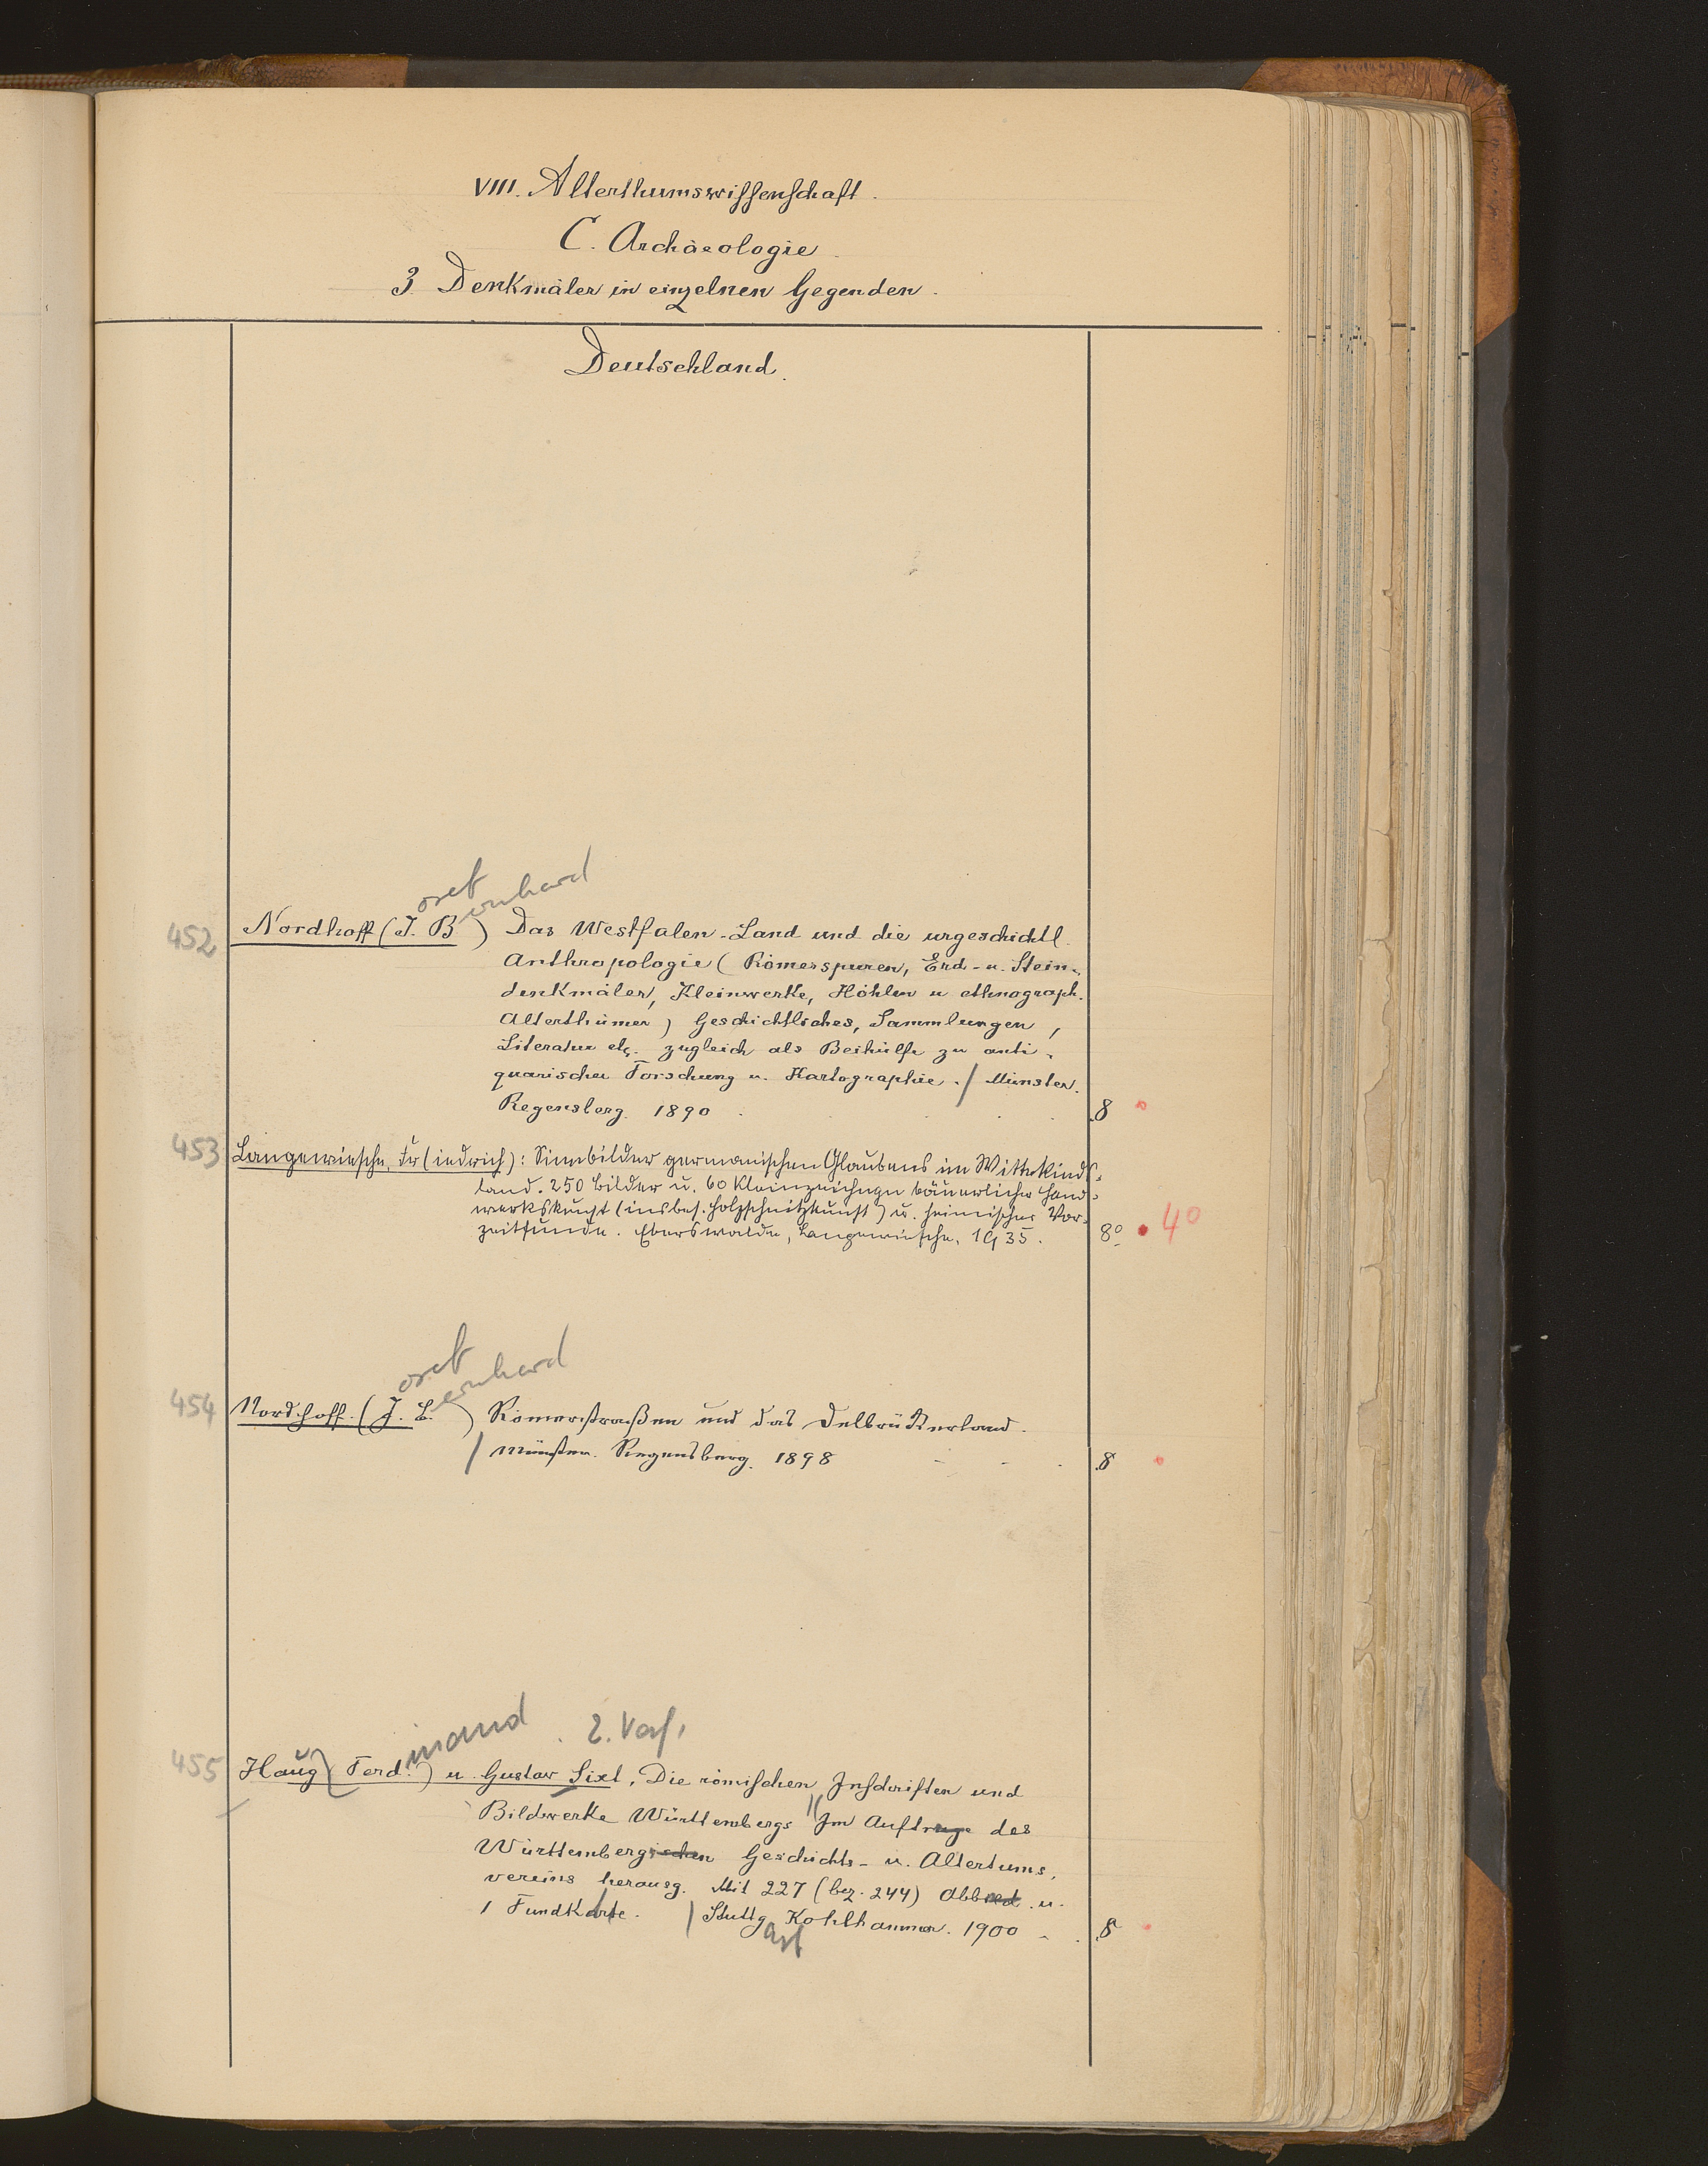 VIII. Alterthumswissenschaft.
C. Archäologie
3 Denkmäler in einzelnen Gegenden.
Deutschland.
osef ernhard
452 Nordhoff (J. B ) Das Westfalen-Land und die urgeschichtl.
Anthropologie (Römerspuren, Erd- u. Stein-
denkmäler, Kleinwerke, Höhlen u ethnograph.
Alterthümer) Geschichtliches, Sammlungen,
Literatur etc. zugleich als Beihülfe zu anti-
quarischer Forschung u. Kartographie. / Münster.
Regensberg. 1890 8
453 Langewiesche, Fr(iedrich): Sinnbilder germanischen Glaubens im Wittekinds-
land. 250 Bilder u. 60 Kleinzeichngn bäuerlicher Hand-
werkskunst (insbes. Holzschnitzkunst) u. heimischer Vor-
zeitfunde. Eberswalde, Langewiesche, 1935. 8° 4°
osef ernhard
454 Nordhoff. (J. B. ) Römerstraßen und das Delbrückerland.
/ Münster. Regensberg. 1898 8
inand 2. Verf.
455 Haug (Ferd.) u. Gustav Sixt, Die römischen Inschriften und
Bildwerke Württembergs // Im Auftrage des
Württembergischen Geschichts- u. Altertums-
vereins herausg. Mit 227 (bez. 244) Abbild. u.
1 Fundkarte. / Stuttg Kohlhammer. 1900 8
art